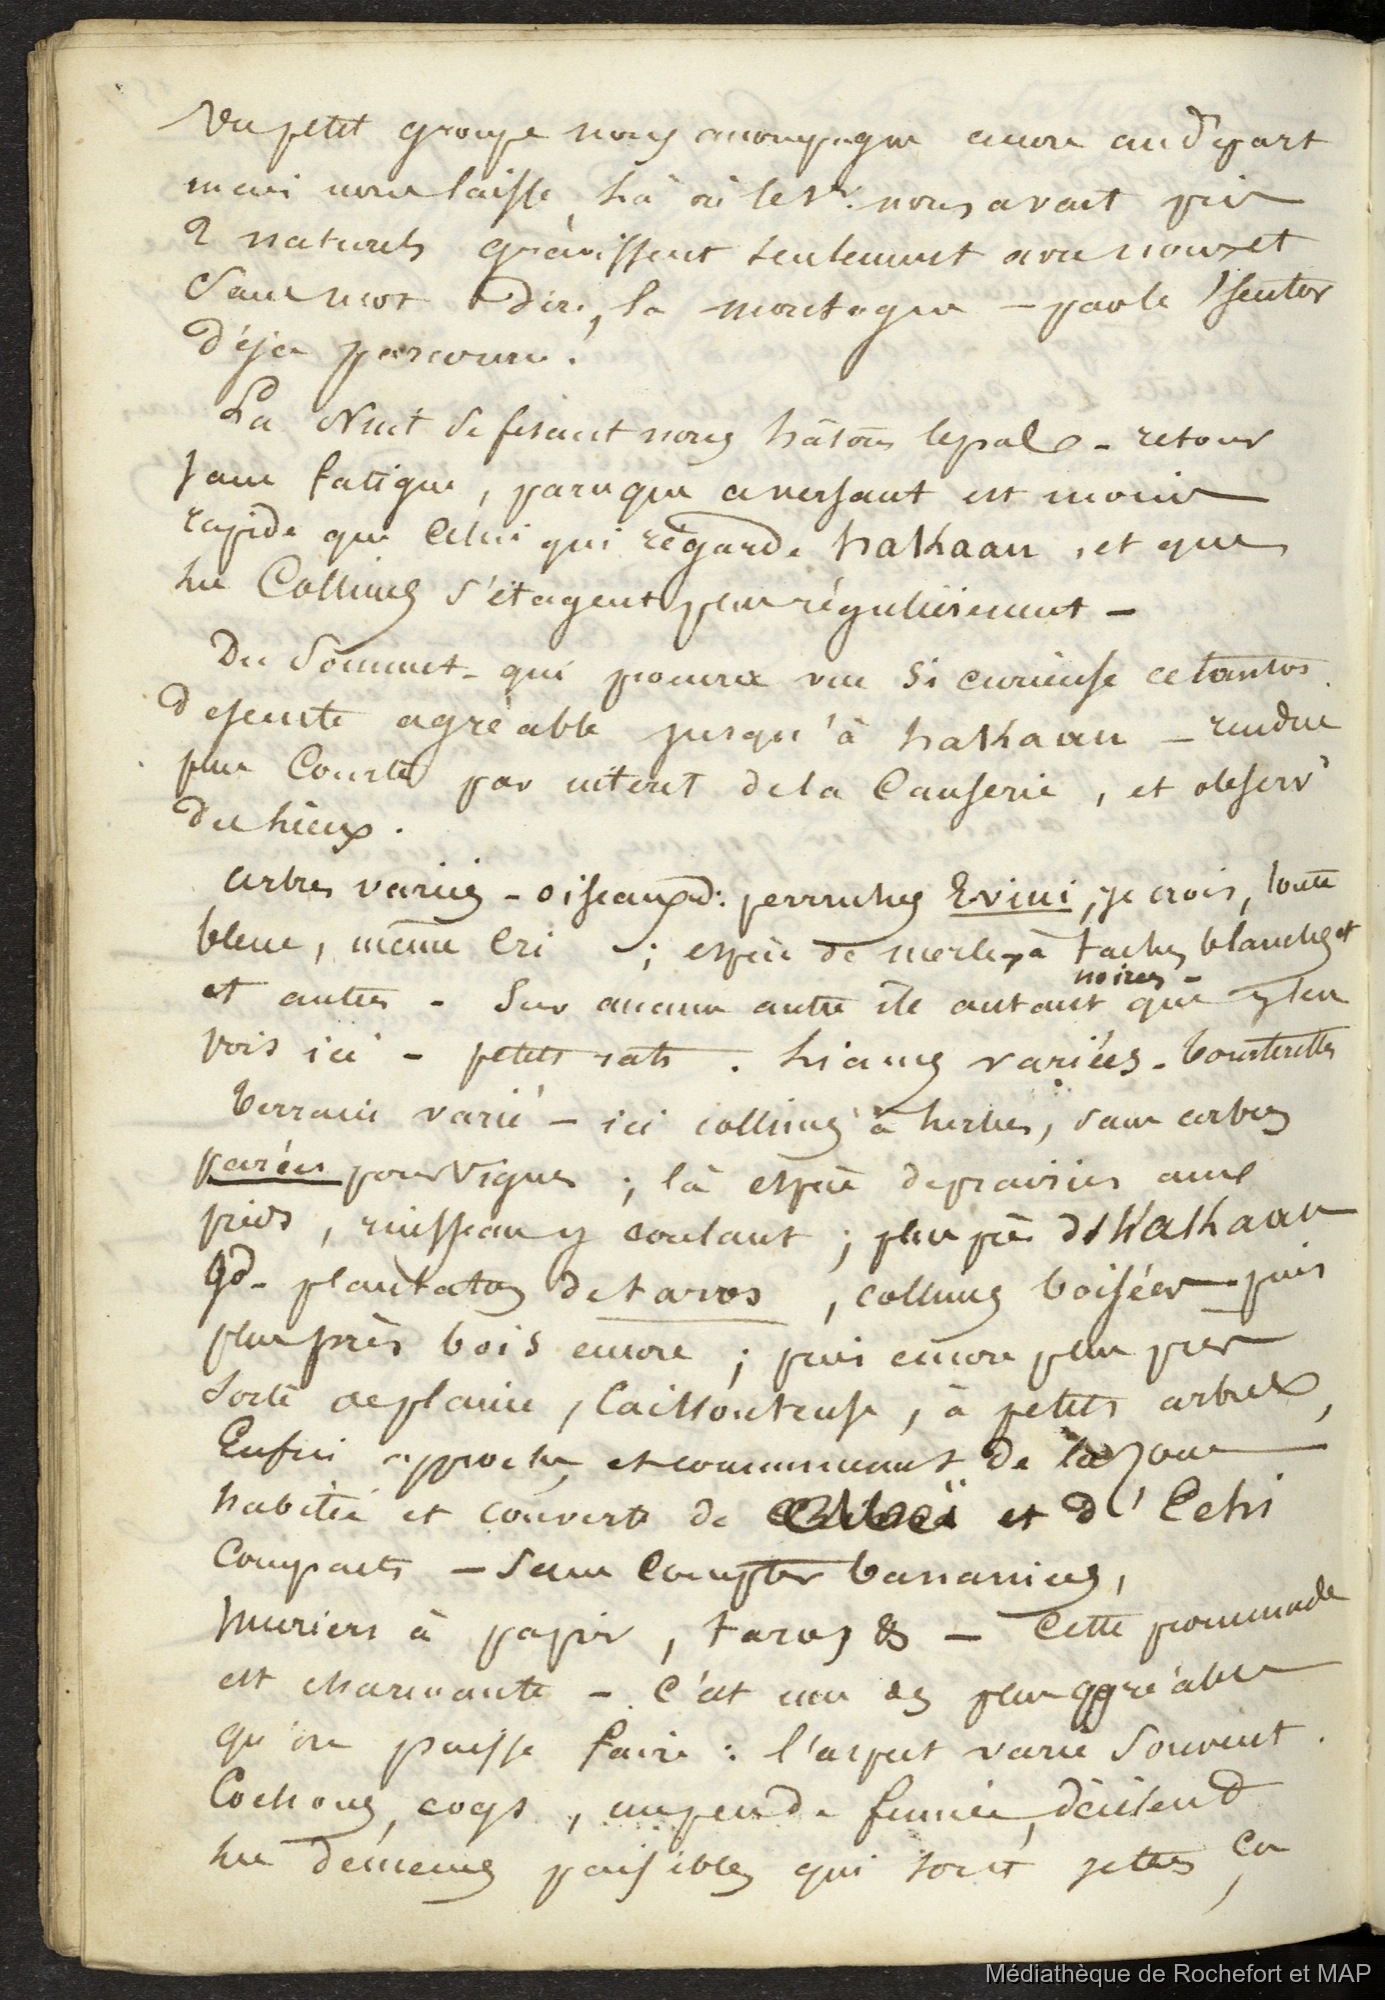 Un petit groupe nous accompagne encore au départ
mais nous laisse, là où le Vr. nous avait pris
2 naturels gravissent seulement avec nous et
sans mot dire, la montagne — par le sentier
déja parcouru.
La Nuit se fesant nous hâtons le pas — retour
sans fatigue, parceque ce versant est moins
rapide que celui qui régarde hakaau, et que
les Collines s'étagent plus régulièrement —
Du Sommet — qui procure vue si curieuse cetantôt
descente agréable jusqu'à hakaau — rendue
plus Courte par intéret de la Causerie, et observ
des lieux.
arbres variés — oiseaux d: perruches Evini, je crois, toute
bleue, même Cri ; espèce de merles à taches blanches et
noires —
et autres — Sur aucune autre île autant que j'en
vois ici — petits rats. lianes variées — tourterelles
terrain varié — ici collines à herbes, sans arbres
parées pour Vignes ; là espèce de prairies aux
pieds, ruisseau y coulant ; plus près d'Hakaau
gd — plantatons de taros, collines boisées — puis
plus près bois encore ; puis encore plus près
sorte de plaine, Caillouteuse, à petits arbres,
Enfin approche et commencement de la zone
habitée et couverte de et d' Eehi
Compacts — sans compter bananiers,
muriers à papier, taros & — Cette promenade
est charmante — C'est une des plus agréables
qu'on puisse faire : l'aspect varie souvent.
Cochons, coqs, un peu de fumée, décèlent
les demeures paisibles qui sont jettées çà
Médiathèque de Rochefort et MAP